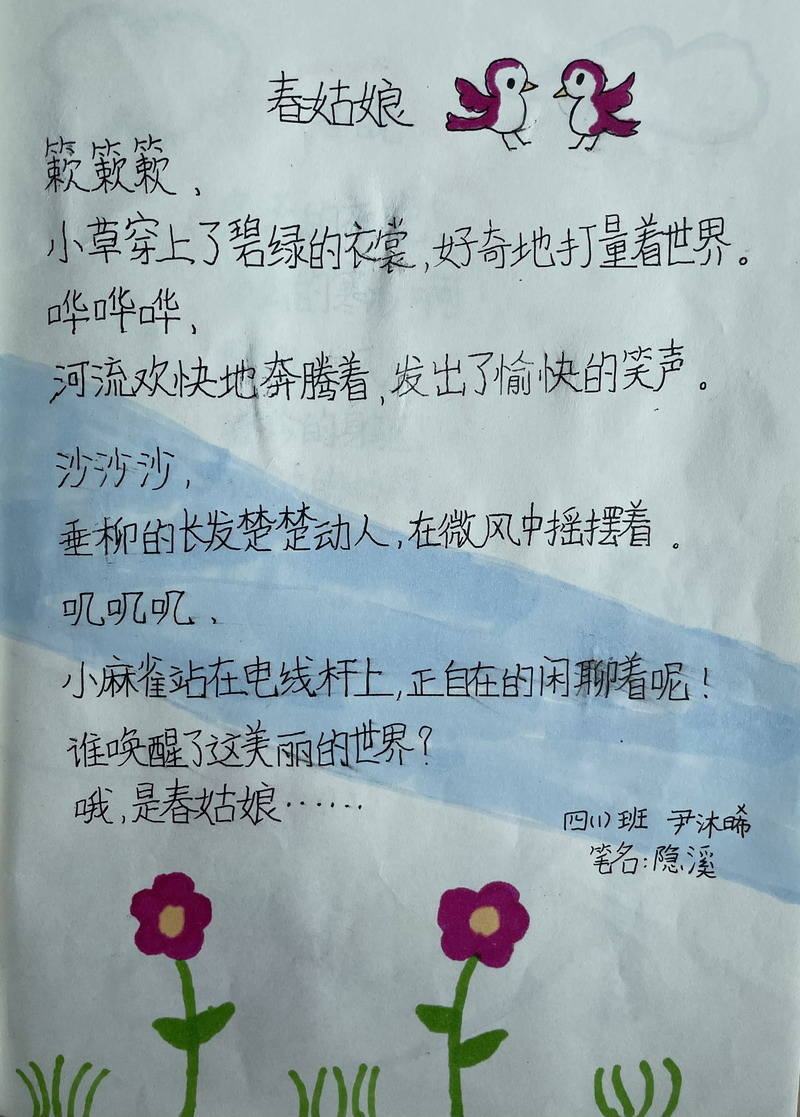 春姑娘
簌簌簌、
小草穿上了碧绿的衣裳,好奇地打量着世界。
哗哗哗、
河流欢快地奔腾着,发出了愉快的笑声。
沙沙沙,
垂柳的长发楚楚动人,在微风中摇摆着。
叽叽叽、
小麻雀站在电线杆上,正自在的闲聊着呢!
谁唤醒了这美丽的世界?
哦,是春姑娘……
四(1)班 尹沐晞
笔名:隐溪